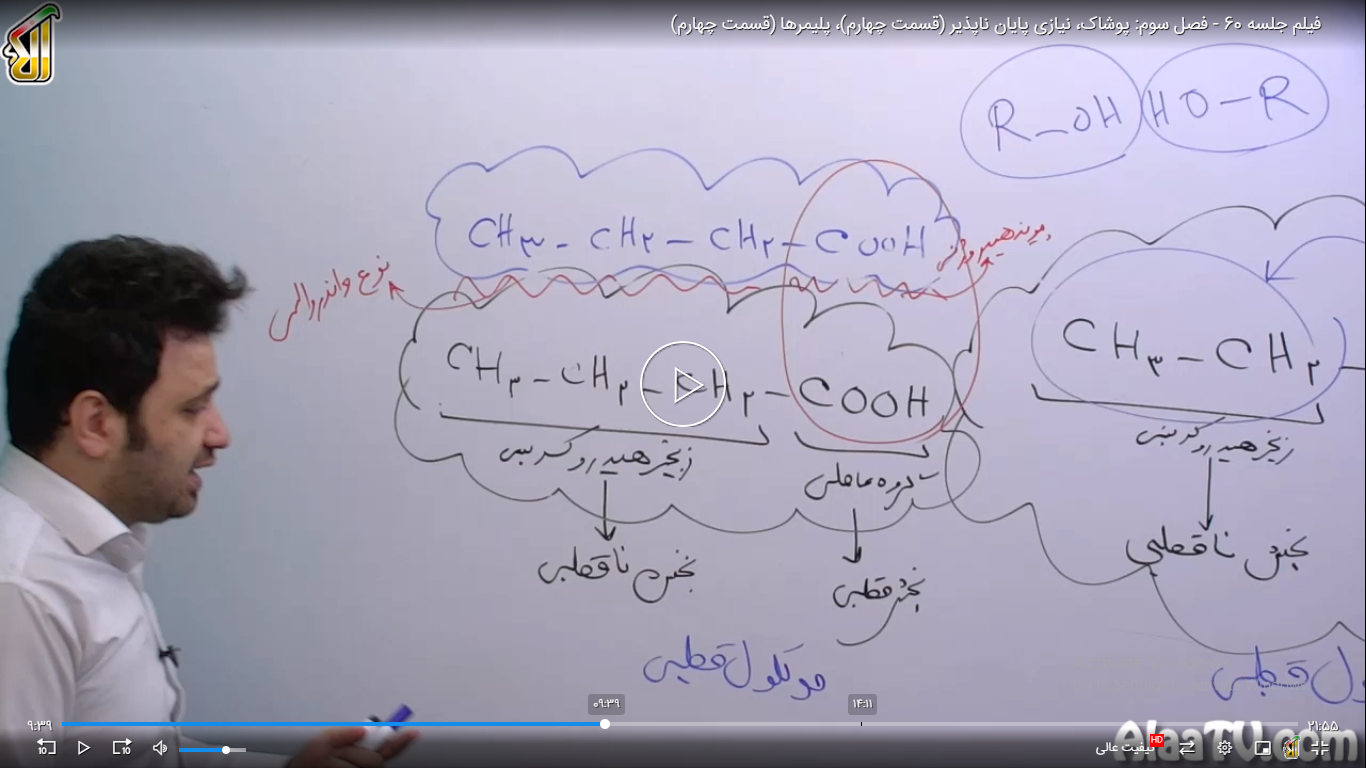 فیلم جلسه ۶۰ - فصل سوم: پوشاک، نیازی پایان ناپذیر (قسمت چهارم)، پلیمرها (قسمت چهارم)
آلاء
R-OH HO-R
CH۳-CH۲-CH۲-COOH
پیوند هیدروژنی
نوع واندروالسی
CH۳-CH۲-CH۲-COOH
CH۳-CH۲-
زنجیر هیدروکربنی
گروه عاملی
زنجیر هیدروکربنی
بخش ناقطبی
بخش قطبی
بخش ناقطبی
مولکول قطبی
ول قطبی
۰۹:۳۹
۱۴:۱۱
۹:۳۹
۲۱:۵۵
10
10
کیفیت عالی
HD
AlaaTV.com